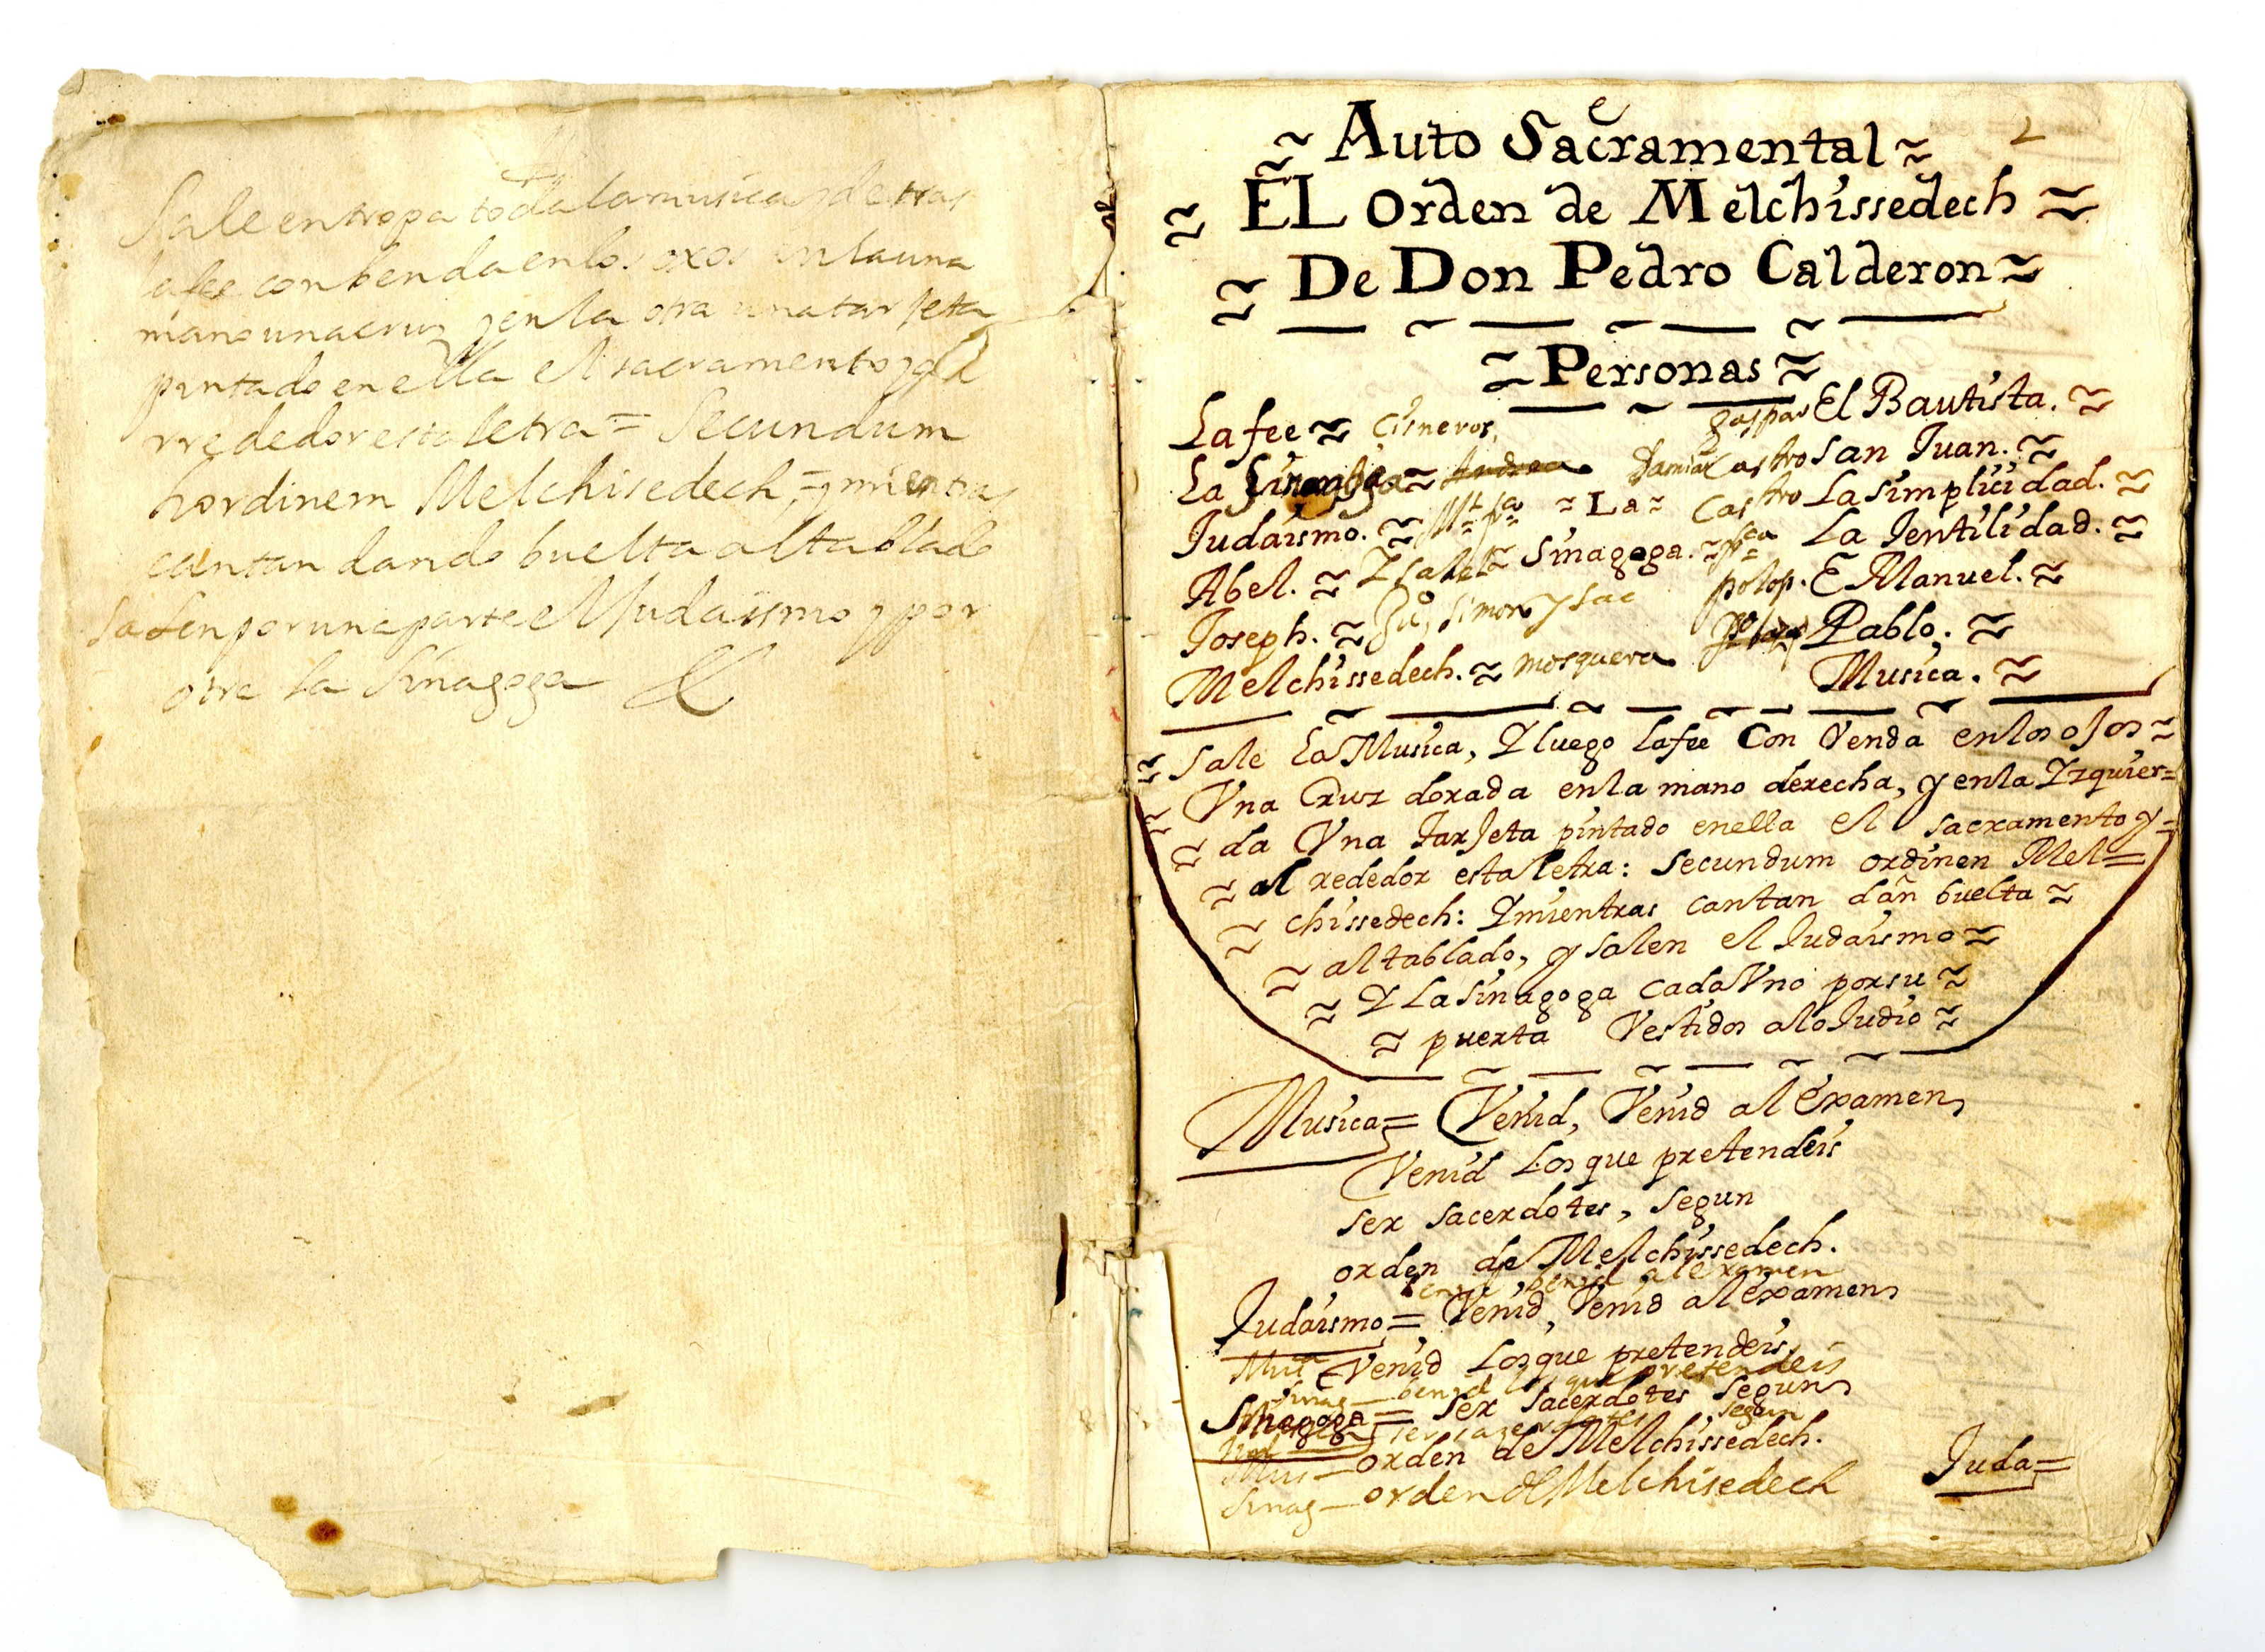 Sale en tropa toda la musica y detras
la fee con benda en los oxos en la una
mano una cruz y en la otra una tarjeta
pintado en ella el sacramento y al
rrededor esta letra = Secundum
hordinem Melchisedech, = y mientras
cantan dando buelta al tablado
salen por una parte el Judaismo y por
otra la Sinagoga &
2
~ Auto Sacramental ~
~ EL Orden de Melchissedech ~
~ De Don Pedro Calderon ~
~ Personas ~
La fee ~ Cisneros,
La
Judaismo. ~
Abel. ~ Isabel
Joseph. ~ Simon Ysac
Melchissedech. ~ mosquera
~ La ~
Sinagoga. ~
gaspar El Bautista. ~
Damian Castro San Juan. ~
Castro La Simplicidad. ~
La Jentilidad. ~
polop. EManuel. ~
Pablo. ~
Musica. ~
~ Sale La Musica, Y luego La fee Con Venda en los ojos ~
~ Vna Cruz dorada en la mano derecha, y en la Yzquier=
~ da Vna Tarjeta pintado en ella el sacramento y =
~ al rededor esta letra: secundum ordinen Mel=
~ chissedech: Y mientras cantan dan buelta ~
~ al tablado, y salen el Judaismo ~
~ Y La Sinagoga cada Vno por su ~
~ puerta Vestidos a lo Judio ~
Musica = Venid, Venid al Examen,
Venid Los que pretendeis
ser sacerdotes, segun
orden de Melchissedech.
benid, benid al examen
Judaismo = Venid, Venid al examen,
Mus Venid Los que pretendeis,
Sinag — benid los que pretendeis
Sinagoga = ser sacerdotes segun
ser sazerdotes segun
Mus — orden de Melchissedech.
Sinag — orden de Melchisedech
Juda =